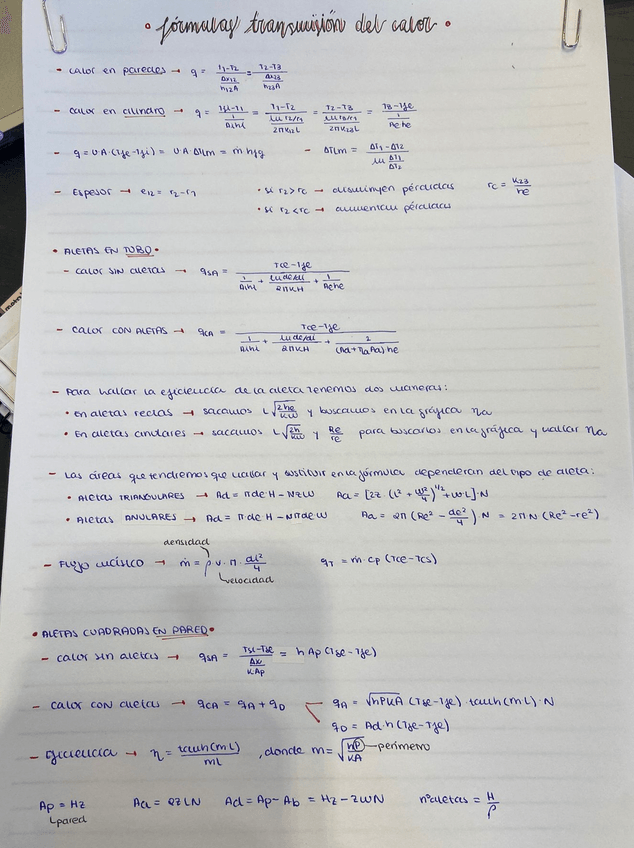 • fórmulas transmisión del calor •
- calor en paredes → q = (T1-T2)/(Δx12/h12A) = (T2-T3)/(Δx23/h23A)
- calor en cilindro → q = (Tfi-T1)/(1/Aihi) = (T1-T2)/((ln r2/r1)/(2πK12L)) = (T2-T3)/((ln r3/r2)/(2πK23L)) = (T3-Tfe)/(1/Aehe)
- q = U·A·(Tfe-Tfi) = U·A·ΔTlm = ṁ hfg - ΔTlm = (ΔT1-ΔT2)/(ln ΔT1/ΔT2)
- Espesor → e12 = r2-r1 • si r2>rc → disminuyen pérdidas rc = K23/he
• si r2<rc → aumentan pérdidas
• ALETAS EN TUBO •
- calor SIN aletas → qSA = (Tce-Tfe)/(1/Aihi + (ln de/di)/(2πKH) + 1/Aehe)
- calor CON ALETAS → qCA = (Tce-Tfe)/(1/Aihi + (ln de/di)/(2πKH) + 1/((Ad+ηaAa)he))
- Para hallar la eficiencia de la aleta tenemos dos maneras:
• En aletas rectas → sacamos L√(2he/KW) y buscamos en la gráfica ηa
• En aletas circulares → sacamos L√(2h/KW) y Re/re para buscarlos en la gráfica y hallar ηa
- Las áreas que tendremos que hallar y sustituir en la fórmula dependeran del tipo de aleta:
• Aletas TRIANGULARES → Ad = π de·H - NZW Aa = [2Z·(L² + W²/4)^1/2 + W·L]·N
• Aletas ANULARES → Ad = π de·H - Nπ de W Aa = 2π(Re² - de²/4)·N = 2πN(Re²-re²)
densidad
- Flujo másico → ṁ = ρ·v·π·di²/4 qT = ṁ·cp(Tce-Tcs)
velocidad
• ALETAS CUADRADAS EN PARED •
- calor sin aletas → qSA = (Tsi-Tse)/(Δx/KAp) = h Ap(Tse-Tfe)
- calor con aletas → qCA = qA + qD qA = √hPKA (Tse-Tfe)·tanh(mL)·N
qD = Ad·h(Tse-Tfe)
- Eficiencia → η = tanh(mL)/mL , donde m = √(hP/KA) perímetro
Ap = Hz Aa = 2ZLN Ad = Ap-Ab = Hz-ZWN nº aletas = H/P
pared